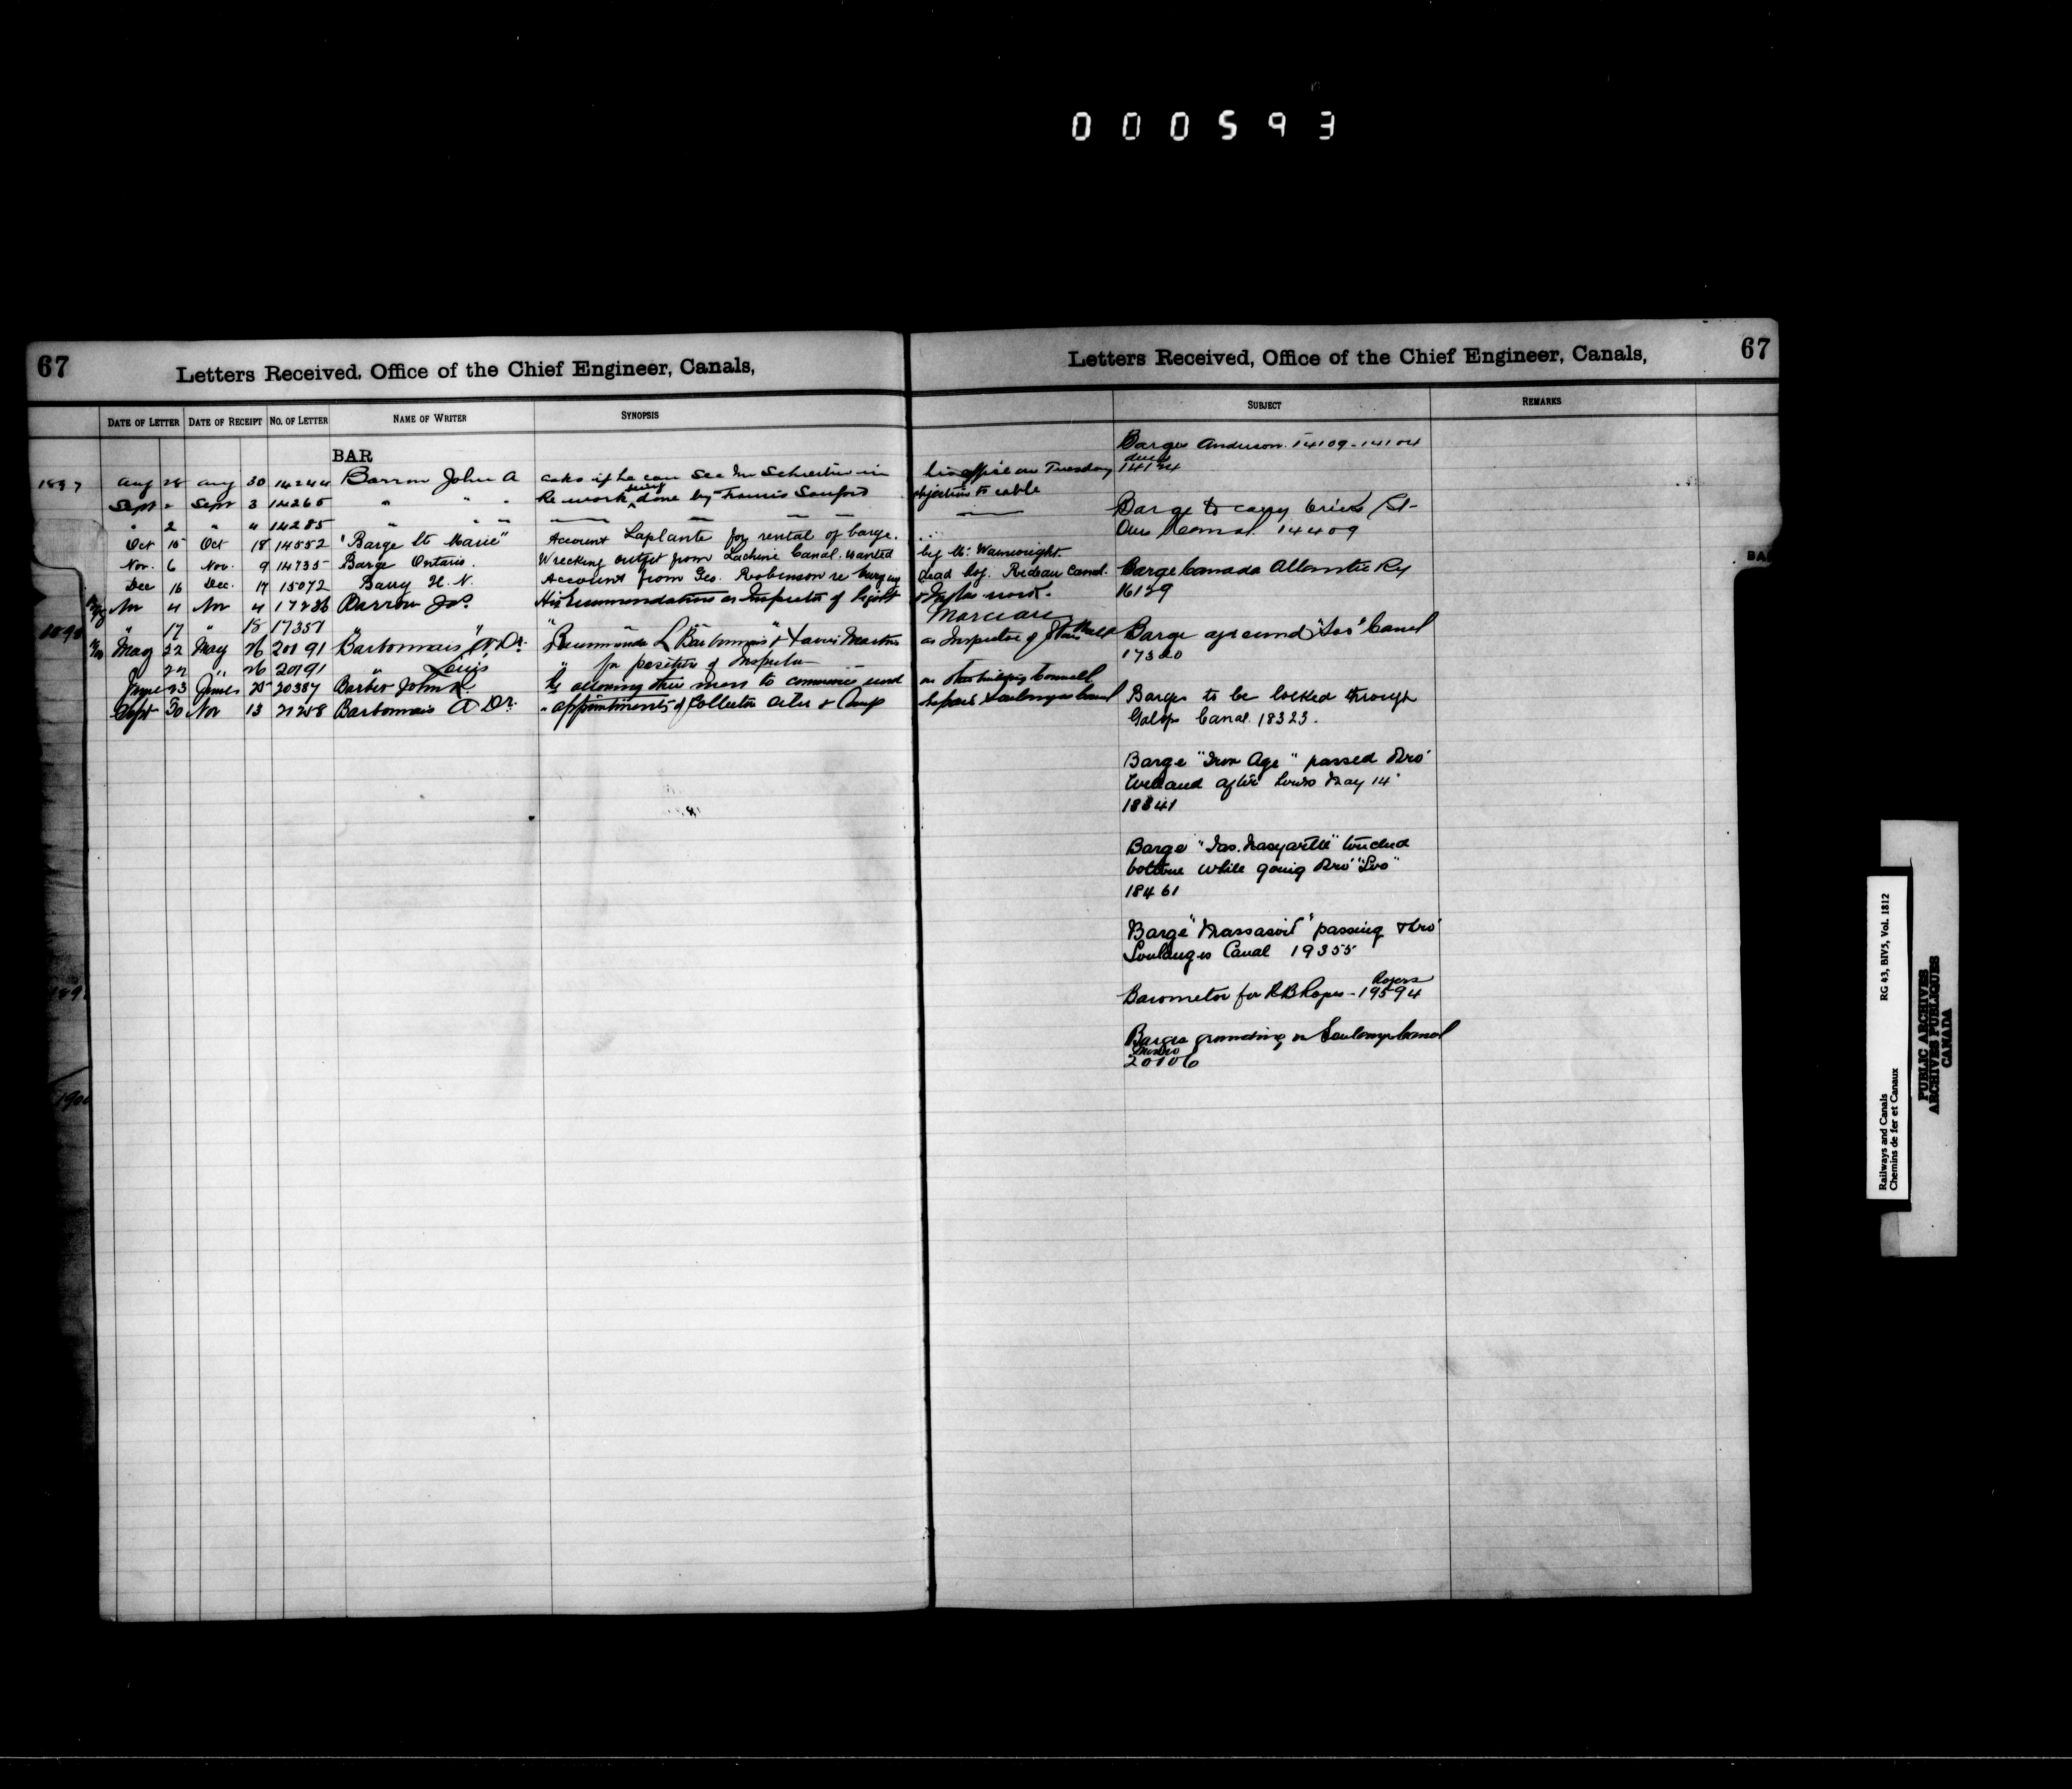 000593
67
Letters Received, Office of the Chief Engineer, Canals,
Letters Received, Office of the Chief Engineer, Canals,
67
DATE OF LETTER DATE OF RECEIPT NO. OF LETTER NAME OF WRITER SYNOPSIS SUBJECT REMARKS
BAR
1897 Aug 28 Aug 30 14244 Barron John A asks if he can see Mr Schreiber in his office on Tuesday
Sept " Sept 3 14265 " " " Re work being done by Francis Sanford objections to cable
" 2 " " 14285 " " "
Oct 15 Oct 18 14552 "Barge Ste Marie" Account Laplante for rental of barge.
Nov. 6 Nov. 9 14735 Barge Ontario. Wrecking outfit from Lachine Canal wanted by Mr. Wainwright.
Dec 16 Dec. 17 15072 Barry H. N. Account from Geo. Robinson re burying dead hog. Rideau Canal.
Nov 4 Nov 4 17286 Barrow Jno. His recommendations as Inspector of
1898 " 17 " 18 17351 " "
May 22 May 26 20191 Barbonnais A. Dr. Recommends L Barbonnais & as Inspector of
" 22 " 26 20191 " Louis " for position of Inspector
June 23 June 25 20387 Barber John R. Re allowing their men to commence work on
Sept 30 Nov 13 21258 Barbonnais A Dr. " appointments of Collector Soulanges Canal
Barge Anderson 14109 - 14104
14124
Barge to carry
Canal. 14409
Barge Canada Atlantic Ry
16129
Barge aground "Soo" Canal
17320
Barges to be locked through
Galops Canal. 18323.
Barge "Iron Age" passed thro'
Welland after hours May 14
18341
Barge "Jas. " touched
bottom while going thro' "Soo"
18461
Barge "Massasoit" passing thro'
Soulanges Canal 19355
Rogers
Barometer for R B Rogers - 19594
Barges grounding in Soulanges Canal
20106
BAR
1900
Railways and Canals RG 43, BIV5, Vol. 1812
Chemins de fer et Canaux
PUBLIC ARCHIVES
ARCHIVES PUBLIQUES
CANADA